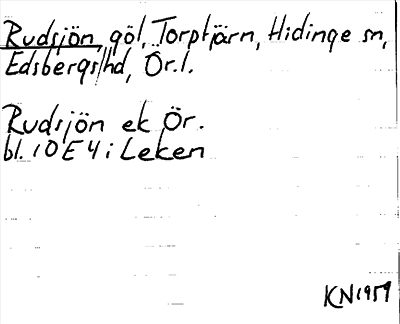 Rudsjön göl, Torptjärn, Hidinge sn,
Edsbergs hd, Ör.l.
Rudsjön ek Ör.
bl. 10 E 4 i Leken
KN 1959